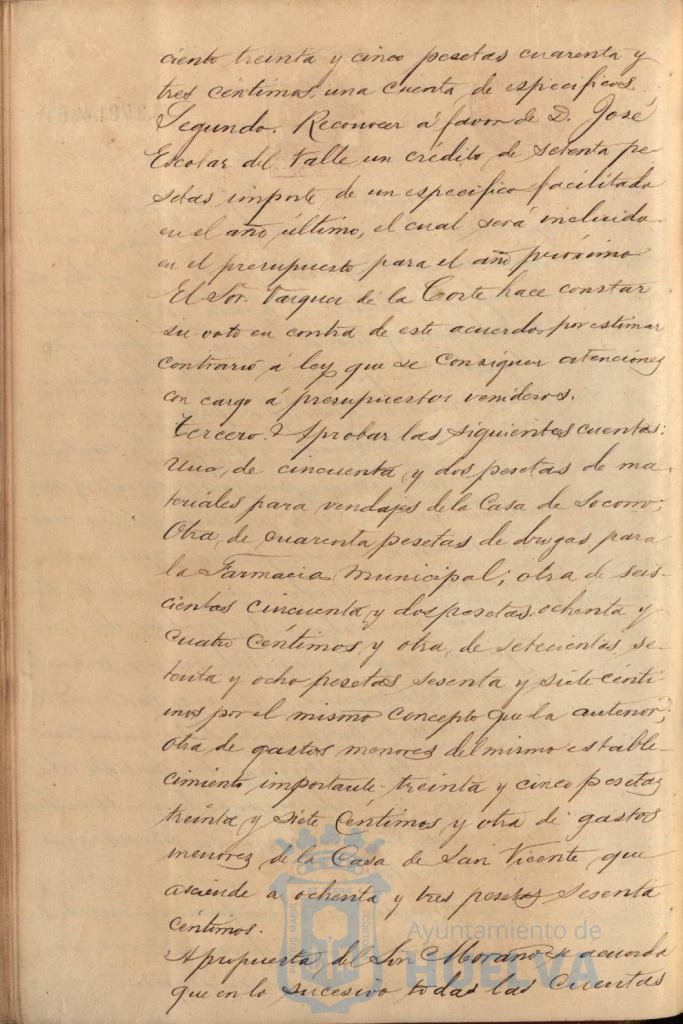 ciento treinta y cinco pesetas cuarenta y
tres céntimos, una cuenta de específicos.
Segundo. Reconocer á favor de D. José
Escolar del Valle un crédito de setenta pe-
setas importe de un específico facilitado
en el año último, el cual será incluido
en el presupuesto para el año próximo
El Sor. Vazquez de la Corte hace constar
su voto en contra de este acuerdo por estimar
contrario á ley que se consignen atenciones
con cargo á presupuestos venideros.
Tercero. Aprobar las siguientes cuentas:
Una, de cincuenta y dos pesetas de ma-
teriales para vendajes de la Casa de Socorro;
Otra, de cuarenta pesetas de drogas para
la Farmacia Municipal; otra de seis-
cientas cincuenta y dos pesetas ochenta y
cuatro céntimos y otra, de setecientas se-
tenta y ocho pesetas sesenta y siete cénti-
mos por el mismo concepto que la anterior;
otra de gastos menores del mismo estable-
cimiento importante treinta y cinco pesetas
treinta y siete céntimos y otra de gastos
menores de la Casa de San Vicente que
asciende a ochenta y tres pesetas sesenta
céntimos.
A propuesta del Sor Moraño se acuerda
que en lo sucesivo todas las cuentas
Ayuntamiento de
HUELVA